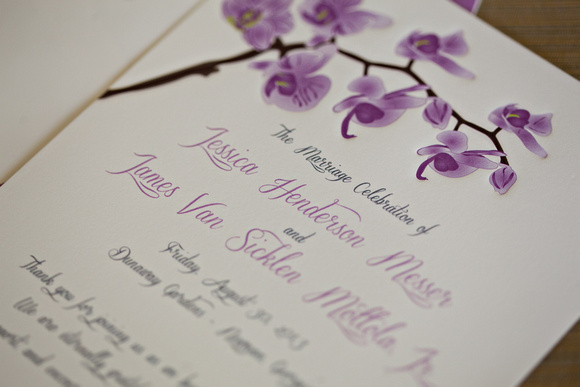 The Marriage Celebration of
Jessica Henderson Messer
and
James Van Sicklen Mottola, Jr.
Friday, August 30, 2013
Dunaway Gardens - Newnan, Georgia
Thank you for joining us as we
We are eternally